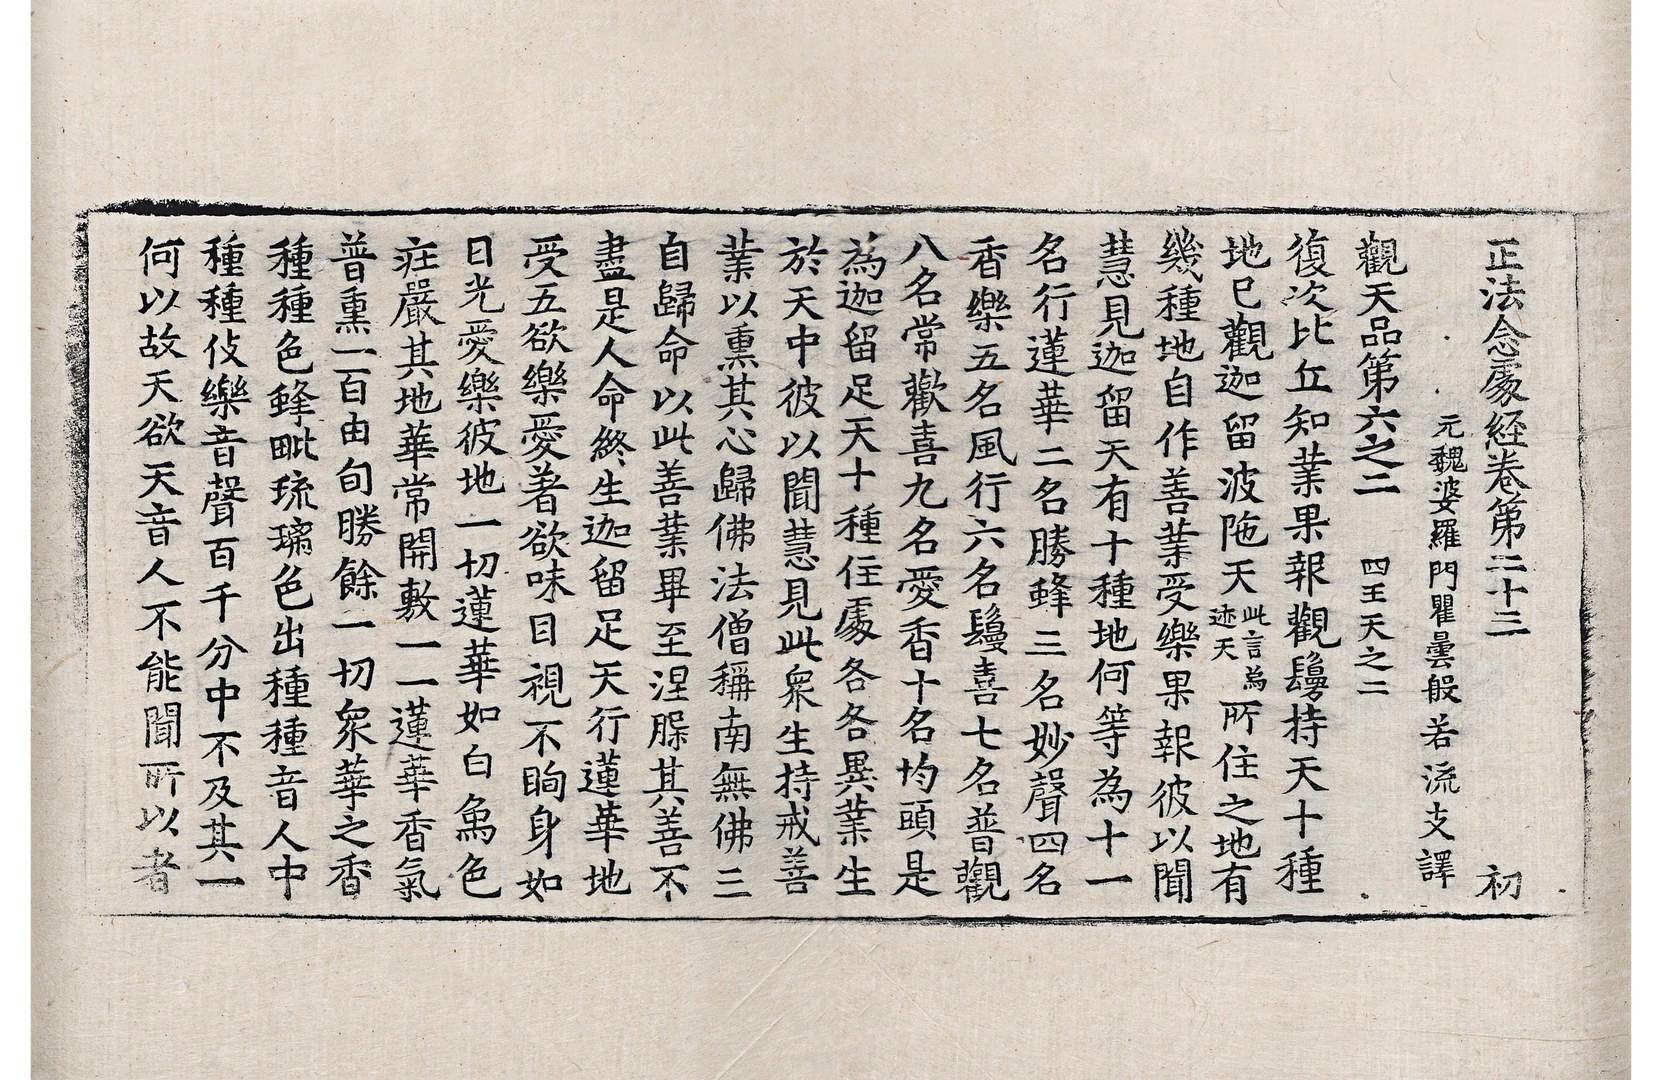 正法念處經卷第二十三　初
元魏婆羅門瞿曇般若流支譯
觀天品第六之二　四王天之二
復次比丘知業果報觀鬘持天十種
地已觀迦留波陁天此言為迹天所住之地有
幾種地自作善業受樂果報彼以聞
慧見迦留天有十種地何等為十一
名行蓮華二名勝蜂三名妙聲四名
香樂五名風行六名鬘喜七名普觀
八名常歡喜九名愛香十名均頭是
為迦留足天十種住處各各異業生
於天中彼以聞慧見此衆生持戒善
業以熏其心歸佛法僧稱南無佛三
自歸命以此善業畢至涅槃其善不
盡是人命終生迦留足天行蓮華地
受五欲樂愛著欲味目視不眴身如
日光愛樂彼地一切蓮華如白鳥色
莊嚴其地華常開敷一一蓮華香氣
普熏一百由旬勝餘一切衆華之香
種種色蜂毗琉璃色出種種音人中
種種伎樂音聲百千分中不及其一
何以故天欲天音人不能聞所以者